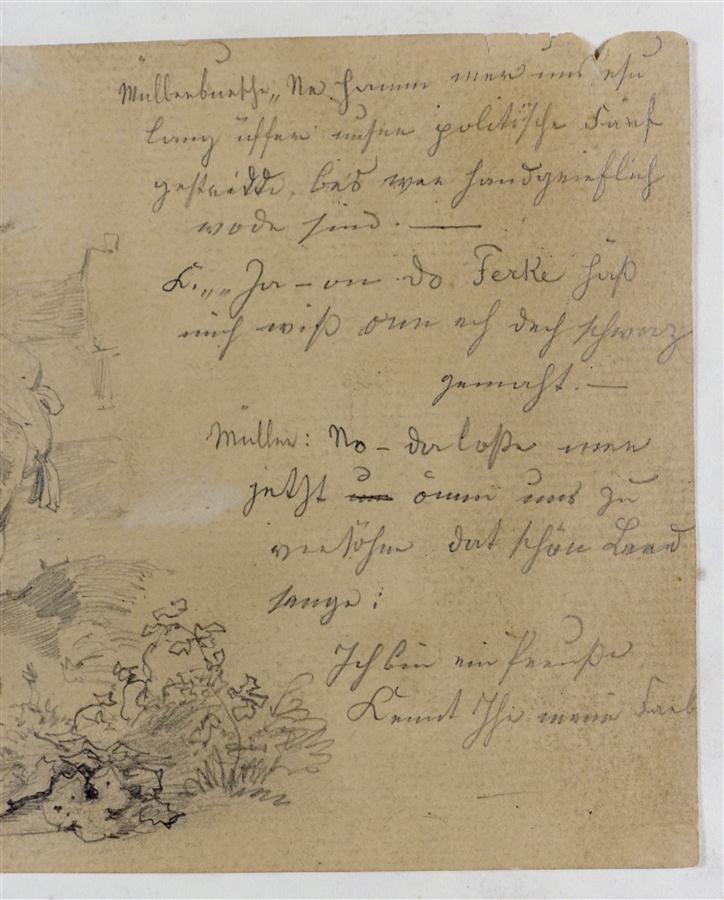 Müllerbursche „Ne hamm mer uns esu
lang üffer unsen politische Färf
gestridde, bes mer handgrieflich
wode sind. —
K. „„Ja – on do Ferke häß
mich wiß onn ech dech schwarz
gemaht. —
Müller: No – da loße mer
jetzt ömm uns zu
versöhne dat schön Leed
senge:
Ich bin ein Preuße
Kennt Ihr meine Farb